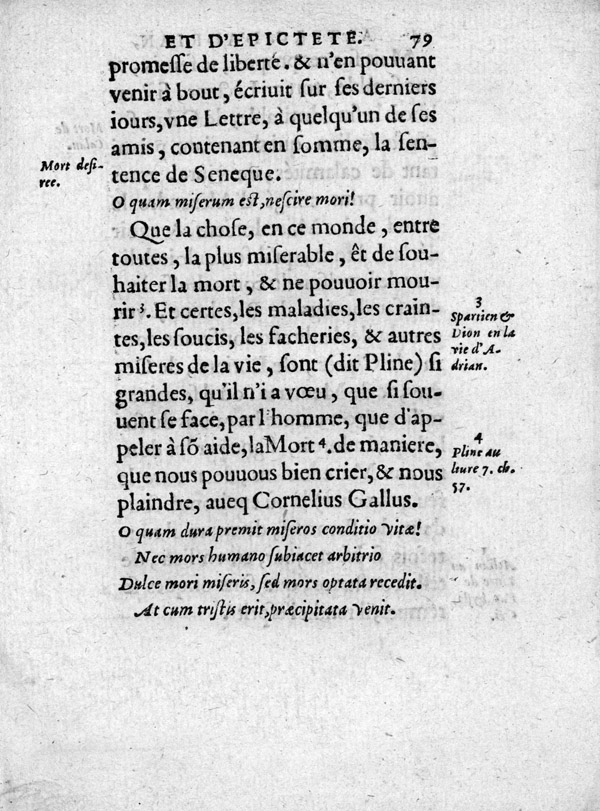 ET D'EPICTETE. 79
promeſſe de liberté. & n'en pouuant
venir à bout, écriuit ſur ſes derniers
iours, vne Lettre, à quelqu'un de ſes
amis, contenant en ſomme, la ſen-
Mort deſi-
ree.
tence de Seneque.
O quam miſerum eſt, neſcire mori!
Que la choſe, en ce monde, entre
toutes, la plus miſerable, êt de ſou-
haiter la mort, & ne pouuoir mou-
rir ³. Et certes, les maladies, les crain-
3
Spartien &
Dion en la
vie d'A-
drian.
tes, les ſoucis, les facheries, & autres
miſeres de la vie, ſont (dit Pline) ſi
grandes, qu'il n'i a vœu, que ſi ſou-
uent ſe face, par l'homme, que d'ap-
peler à ſõ aide, la Mort ⁴. de maniere,
4
Pline au
liure 7. ch.
57.
que nous pouuous bien crier, & nous
plaindre, aueq Cornelius Gallus.
O quam dura premit miſeros conditio vitæ!
Nec mors humano ſubiacet arbitrio
Dulce mori miſeris, ſed mors optata recedit.
At cum triſtis erit, præcipitata venit.